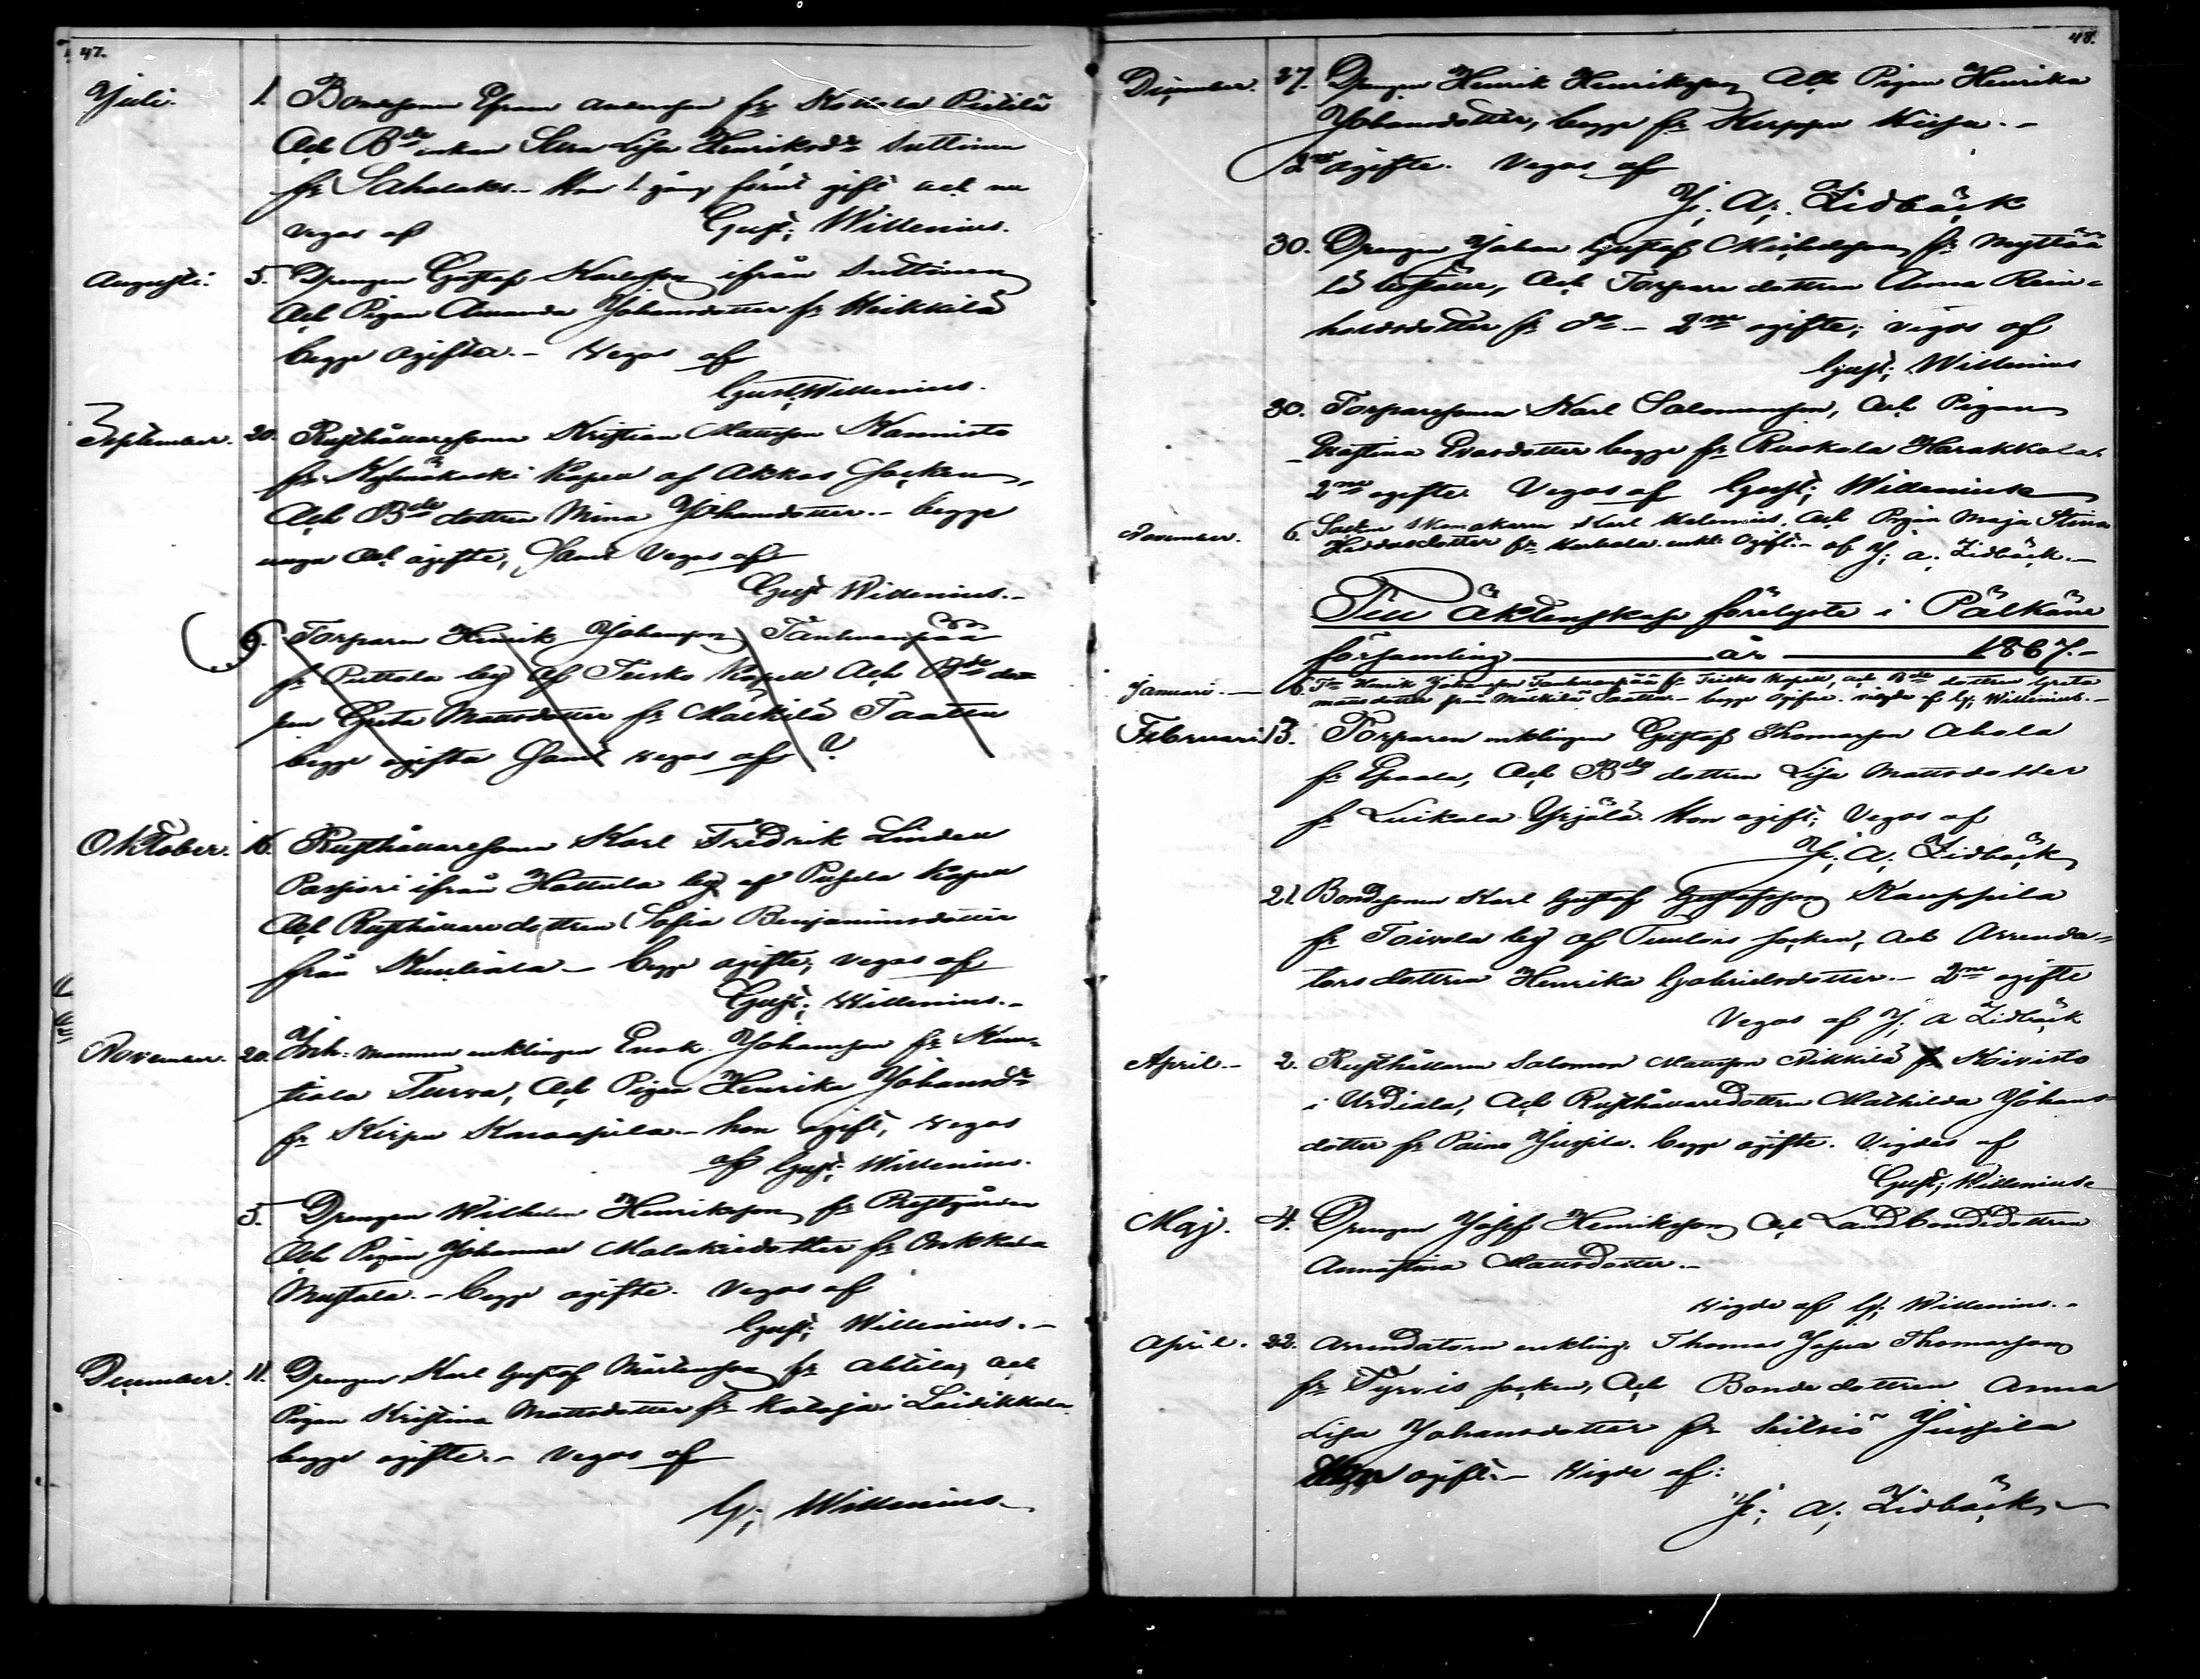 47.
Juli. 1. Bondesonen Efraim Andersson fr. Kollola Pietilä
Och Bde enkan Lisa Henriksdr Suttinen
fr Sahalaks. Hon 1 gång förut gift och nu
vegos af Gust; Willenius.
Augusti. 5. Drengen Gustaf Karlsson ifrån Suttinen
Och Pigan Amanda Johansdotter fr Heikkilä
begge ogifta. - Vegos af
Gust; Willenius.
September. 20. Rusthållaresonen Kristian Mattsson Kannisto
fr. Kylmäkoski Kapell af Akkas Socken,
Och Bde dottren Mina Johansdotter. - begge
unga och ogifte, Samt Vegos af
Gust Willenius. -
6. Torparen Henrik Johansson Tanhuanpää
fr Puttola by af Teisko Kapell Och Bde dot=
ren Greta Mattsdotter fr Mälkilä Taatta
begge ogifta Samt vegos af ?
Oktober. 16. Rusthållaresonen Karl Fredrik Linden
ifrån Hattula by af Kapell
Och Rusthållaredottren Sofia Benjaminsdotter
från Kuuliala - begge ogifte; vegos af
Gust; Willenius. -
November. 20. Inh: mannen enklingen Enok Johansson fr Kuu=
liala Turva, Och Pigan Henrika Johansdr
fr Kirpu - hon ogift, Vegos
af Gust; Willenius.
5. Drengen Wilhelm Henriksson fr Prestgården
Och Pigan Johanna Malakiedotter fr Onkkala
Mustala. - begge ogifte. Vegos af
Gust; Willenius. -
December. 11. Drengen Karl Gustaf Mårtensson fr Ahtila, och
Pigan Kristina Mattsdotter fr Kataja i Laidikkala.
begge ogifte. - Vegos af
G; Willenius
48.
December. 27. Drengen Henrik Henriksson Och Pigan Henrika
Johansdotter, begge fr Kuppu . -
2ne ogifte. Vegos af
J. A; Lidbäck
30. Drengen Johan Gustaf Michelsson fr Myttää
lä , Och Torpare dottren Anna Rein=
holdsdotter fr do - 2ne ogifte; vegos af
Gust; Willenius
30. Torparesonen Karl Salomonsson, Och Pigan
Evastina Evasdotter begge fr Ruokola Harakkala.
2ne ogifte. Vegos af Gust; Willenius
November. 6. Socken Skomakaren Karl Helenius, Och Pigan Maja Stina
fr. enkl. Ogift. - af J; A; Lidbäck. -
Till äktenskap förelyste i Pälkäne
församling år 1867. -
Januari. - 6. Tr Henrik Johansson Tanhuanpää fr Teisko Kapell, och Bde dottren Greta
Mattsdotter från Mälkilä Taatta - begge ogifta. vigde af G; Willenius. -
Februari 13. Torparen enklingen Gustaf Thomasson Ahola
fr Epaala, Och Bde dottren Lisa Mattsdotter
fr Luikala Yrjälä. Hon ogift; Vegos af
J; A; Lidbäck
21. Bondesonen Karl Gustaf Gustafsson Kauppila
fr Toivola by af Tuulois socken, och Arrenda=
tors dottren Henrika Gabrielsdotter. - 2ne ogifte
Vegos af J; A Lidbäck
April. - 2. Rusthållaren Salomon Mattsson Nikkilä Koivisto
i Urdiala, Och Rusthållaredottren Mathilda Johans=
dotter fr Paino Jussila. begge ogifte. Vigdes af
Gust; Willenius
Maj. 4. Drengen Josef Henriksson Och Landbondedottren
Annastina Mattsdotter. -
Vigde af G; Willenius. -
April. 22. Arrendatorn enkling. Thomas Josua Thomasson
fr Tyrvis socken, Och Bonde dottren Anna
Lisa Johansdotter fr Seitsiö Jussila
ogift. - Vigde af:
J; A; Lidbäck